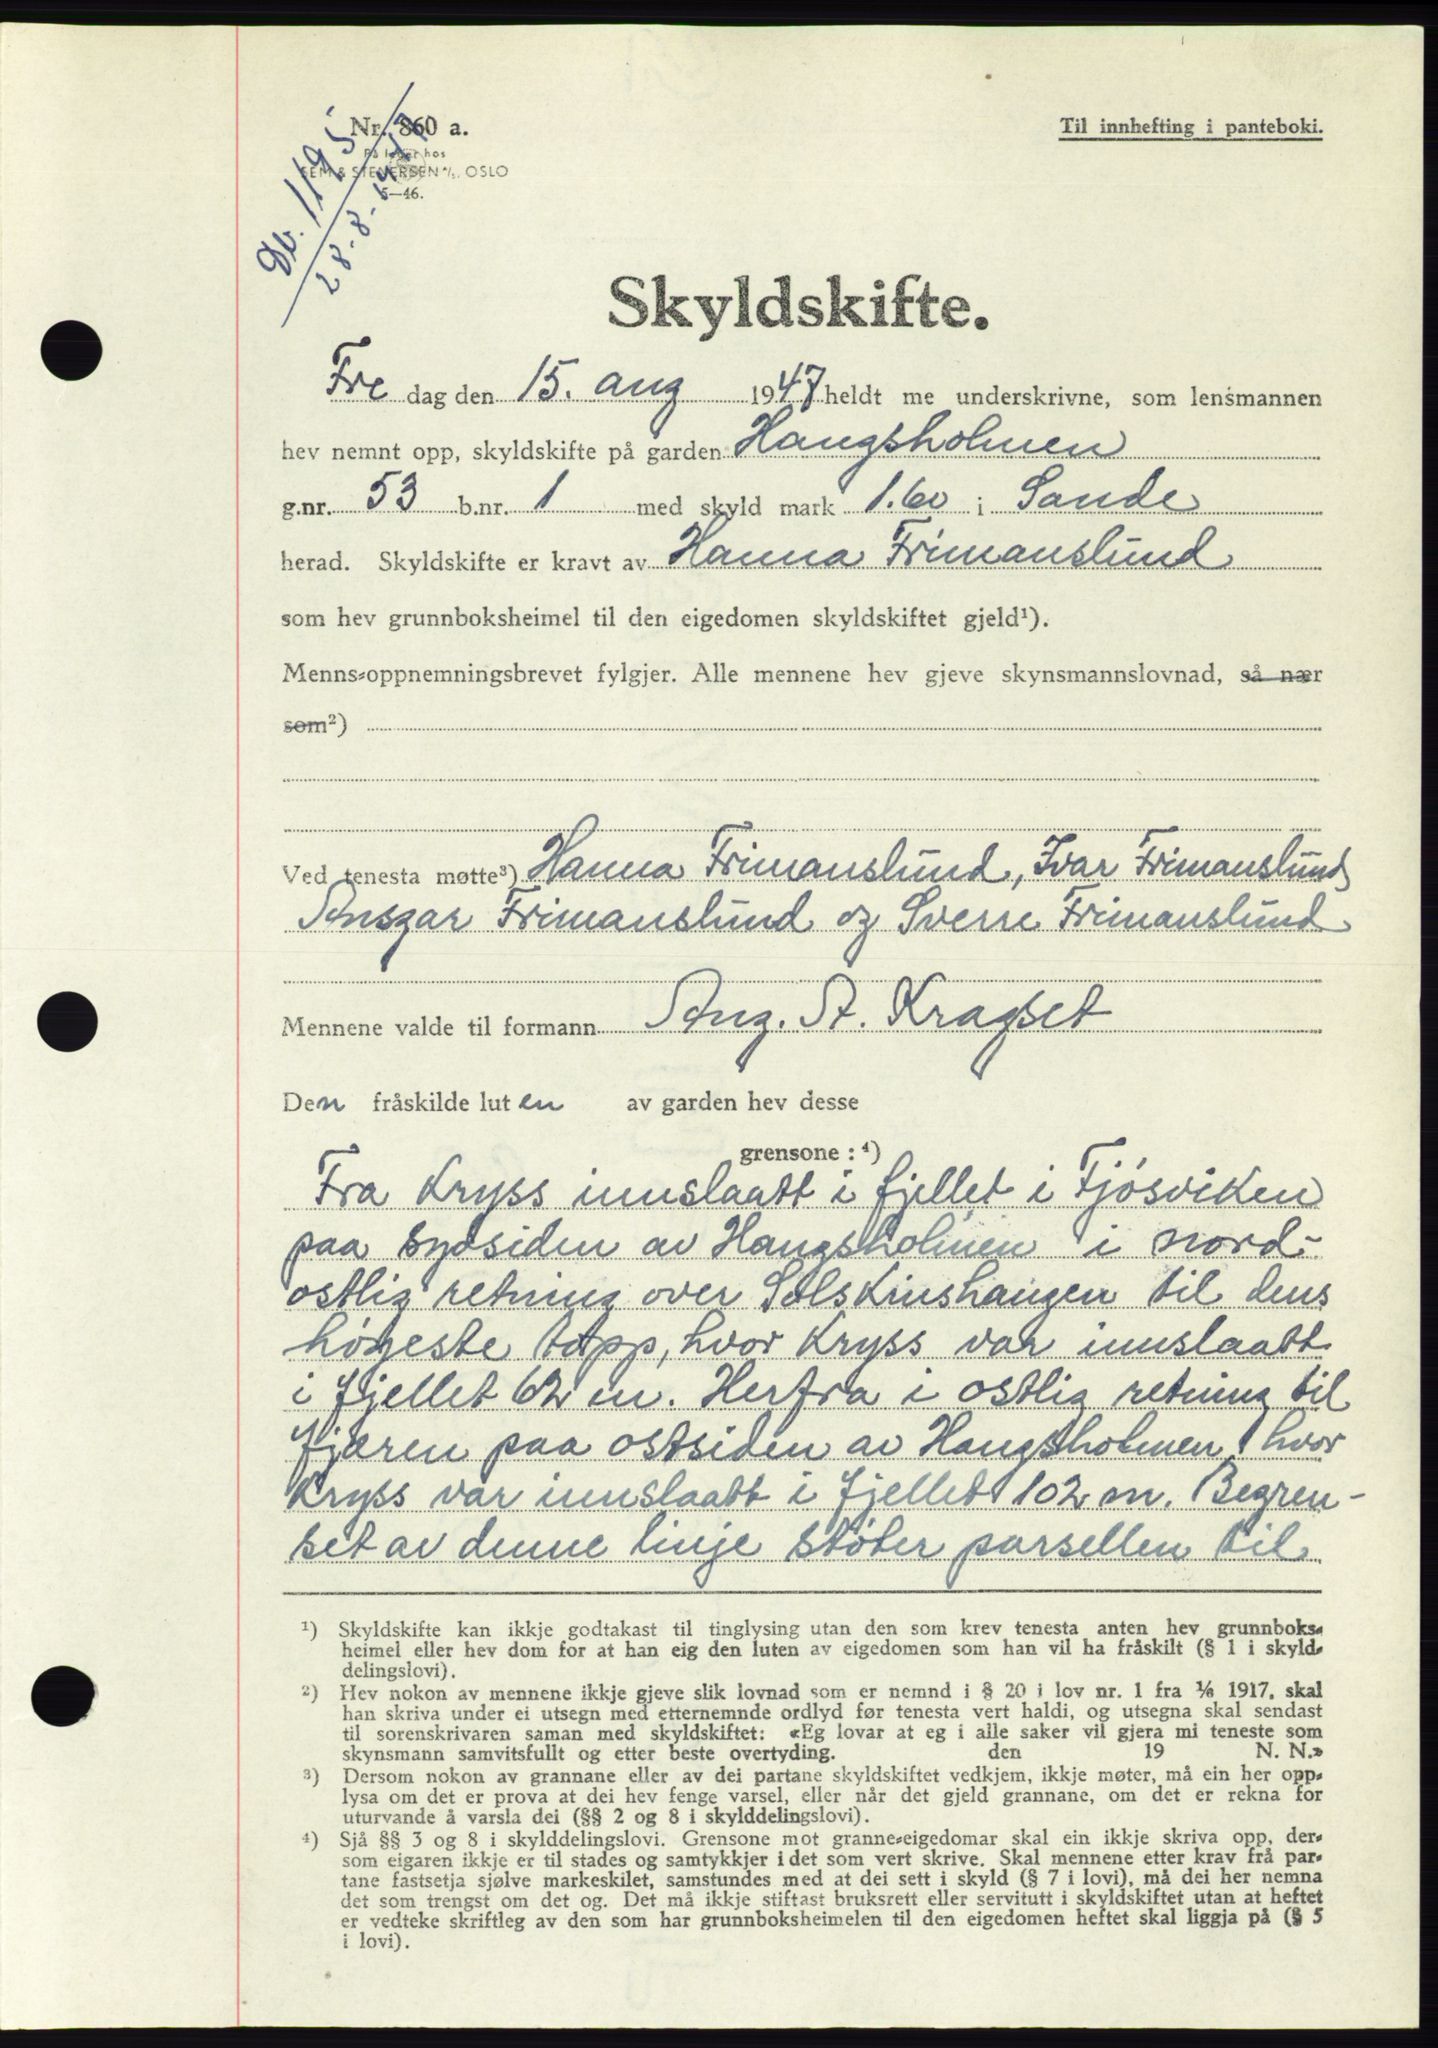 Nr. 860 a.
På lager hos
SEM & STENERSEN A/S, OSLO
5—46.
Db. 1195
28-8-1947
Til innhefting i panteboki.
Skyldskifte.
Fre dag den 15. aug 1947 heldt me underskrivne, som lensmannen
hev nemnt opp, skyldskifte på garden Haugsholmen
g.nr. 53 b.nr. 1 med skyld mark 1.60 i Sande
herad. Skyldskifte er kravt av Hanna Frimanslund
som hev grunnboksheimel til den eigedomen skyldskiftet gjeld¹).
Menns-oppnemningsbrevet fylgjer. Alle mennene hev gjeve skynsmannslovnad, så nær
som²)
Ved tenesta møtte³) Hanna Frimanslund, Ivar Frimanslund,
Ansgar Frimanslund og Sverre Frimanslund
Mennene valde til formann Aug. A. Kragset
Den fråskilde luten av garden hev desse
grensone : ⁴)
Fra Kryss innslaatt i fjellet i Fjósviken
paa sydsiden av Haugsholmen i nord-
ostlig retning over Solskinshaugen til dens
högeste topp, hvor Kryss var innslaatt
i fjellet 62 m. Herfra i ostlig retning til
fjæren paa ostsiden av Haugsholmen, hvor
Kryss var innslaatt i fjellet 102 m. Begren-
set av denne linje stöter parsellen til
¹) Skyldskifte kan ikkje godtakast til tinglysing utan den som krev tenesta anten hev grunnboks-
heimel eller hev dom for at han eig den luten av eigedomen som han vil ha fråskilt (§ 1 i skyld-
delingslovi).
²) Hev nokon av mennene ikkje gjeve slik lovnad som er nemnd i § 20 i lov nr. 1 fra 1/6 1917, skal
han skriva under ei utsegn med etternemnde ordlyd før tenesta vert haldi, og utsegna skal sendast
til sorenskrivaren saman med skyldskiftet: «Eg lovar at eg i alle saker vil gjera mi teneste som
skynsmann samvitsfullt og etter beste overtyding. den 19 N. N.»
³) Dersom nokon av grannane eller av dei partane skyldskiftet vedkjem, ikkje møter, må ein her opp-
lysa om det er prova at dei hev fenge varsel, eller når det gjeld grannane, om det er rekna for
uturvande å varsla dei (§§ 2 og 8 i skylddelingslovi).
⁴) Sjå §§ 3 og 8 i skylddelingslovi. Grensone mot granne-eigedomar skal ein ikkje skriva opp, der-
som eigaren ikkje er til stades og samtykkjer i det som vert skrive. Skal mennene etter krav frå par-
tane fastsetja sjølve markeskilet, samstundes med at dei sett i skyld (§ 7 i lovi), må dei her nemna
det som trengst om det og. Det må ikkje stiftast bruksrett eller servitutt i skyldskiftet utan at heftet
er vedteke skriftleg av den som har grunnboksheimelen til den eigedomen heftet skal liggja på (§ 5
i lovi).